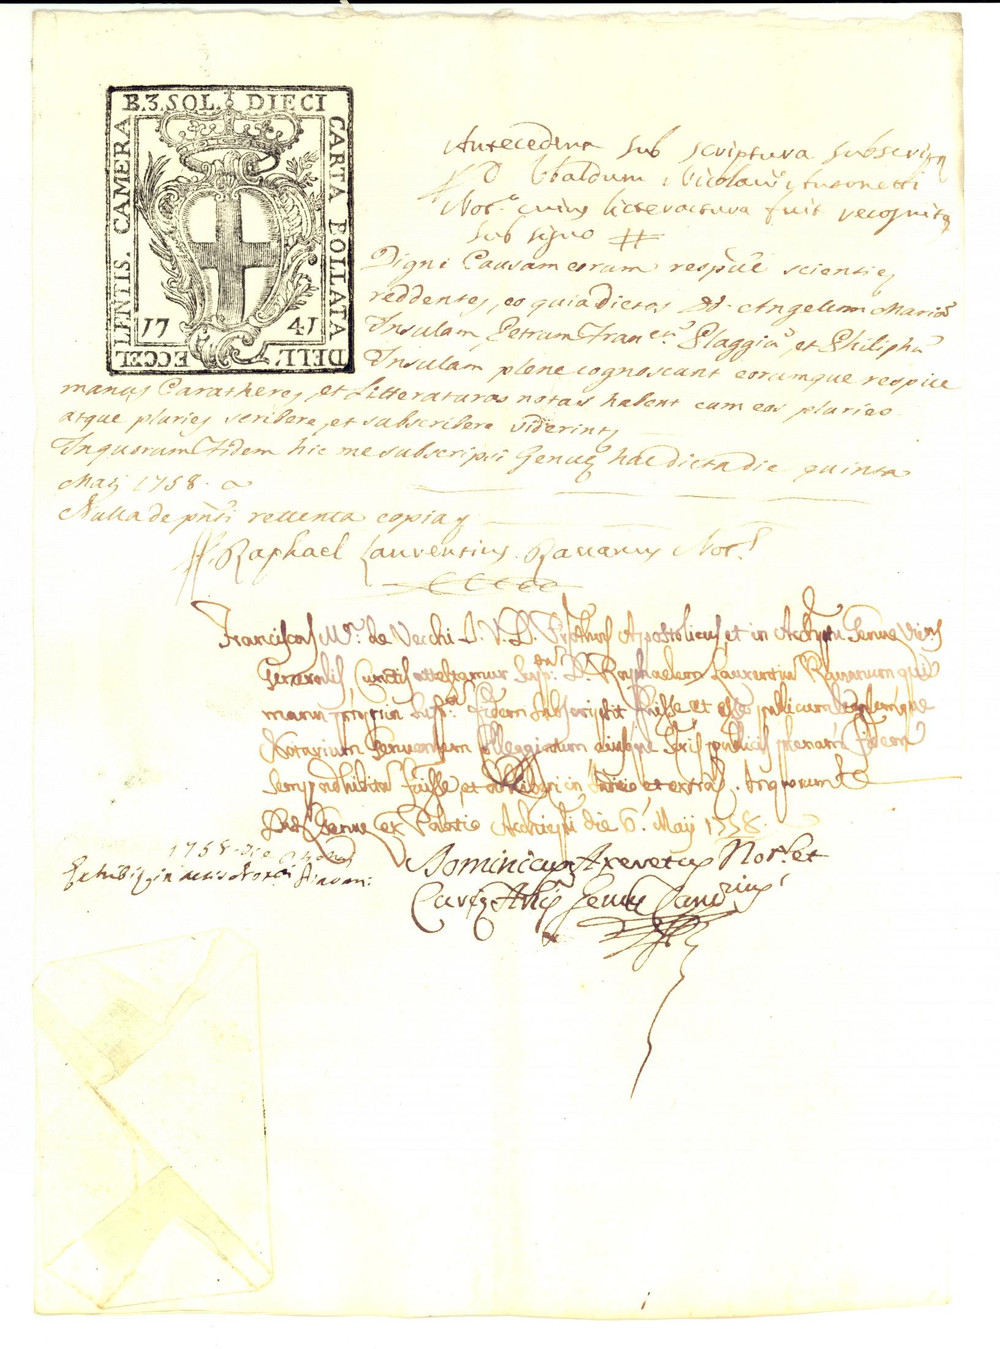 B.3. SOL. DIECI
CARTA BOLLATA
DELL'
ECCEL
LENTIS. CAMERA
17 41
Antecedens sub scriptura subscrip
D Ubaldum Nicolaū Antonetti
Not.s cuius litteractura fuit recognita
sub signo #
Digni Causam eorum respive scientie,
reddentes, eo quia dictos DD. Angelum Mariā
Insulam Petrum Fran.cum Plaggiū, et Philipū
Insulam plene cognoscunt eorumque respive
manus Carathere, et Litteraturas notas habent cum eos plurieo
atque pluries scribere, et subscribere viderint,
In quorum Fidem hic me subscripsi Genuę hac dicta die quinta
Maij 1758.
Nulla de pñti retenta copia
Raphael Laurentius Ravanus Not.s
Franciscus M.a de Vecchi I. V. D. Prothus Apostolicus, et in Archiepu Genue Vicus
Generalis, Cunctis attestamur D. Raphaelem Laurentiū Ravanum qui
manu propria Fidem Subscripsit Fuisse et esse publicum
Notarium Genuensem Colleggiatum eiusque publicis plenam Fidem
semp adhibitam fuisse, et adhiberi in Iudicio et extra. In quorum &
Dat Genue ex Palatio Archiepli die 6. Maij 1758.
1758 die
Exhibit in actis
Dominicus Not.s et
Curię Genue Canc.rius